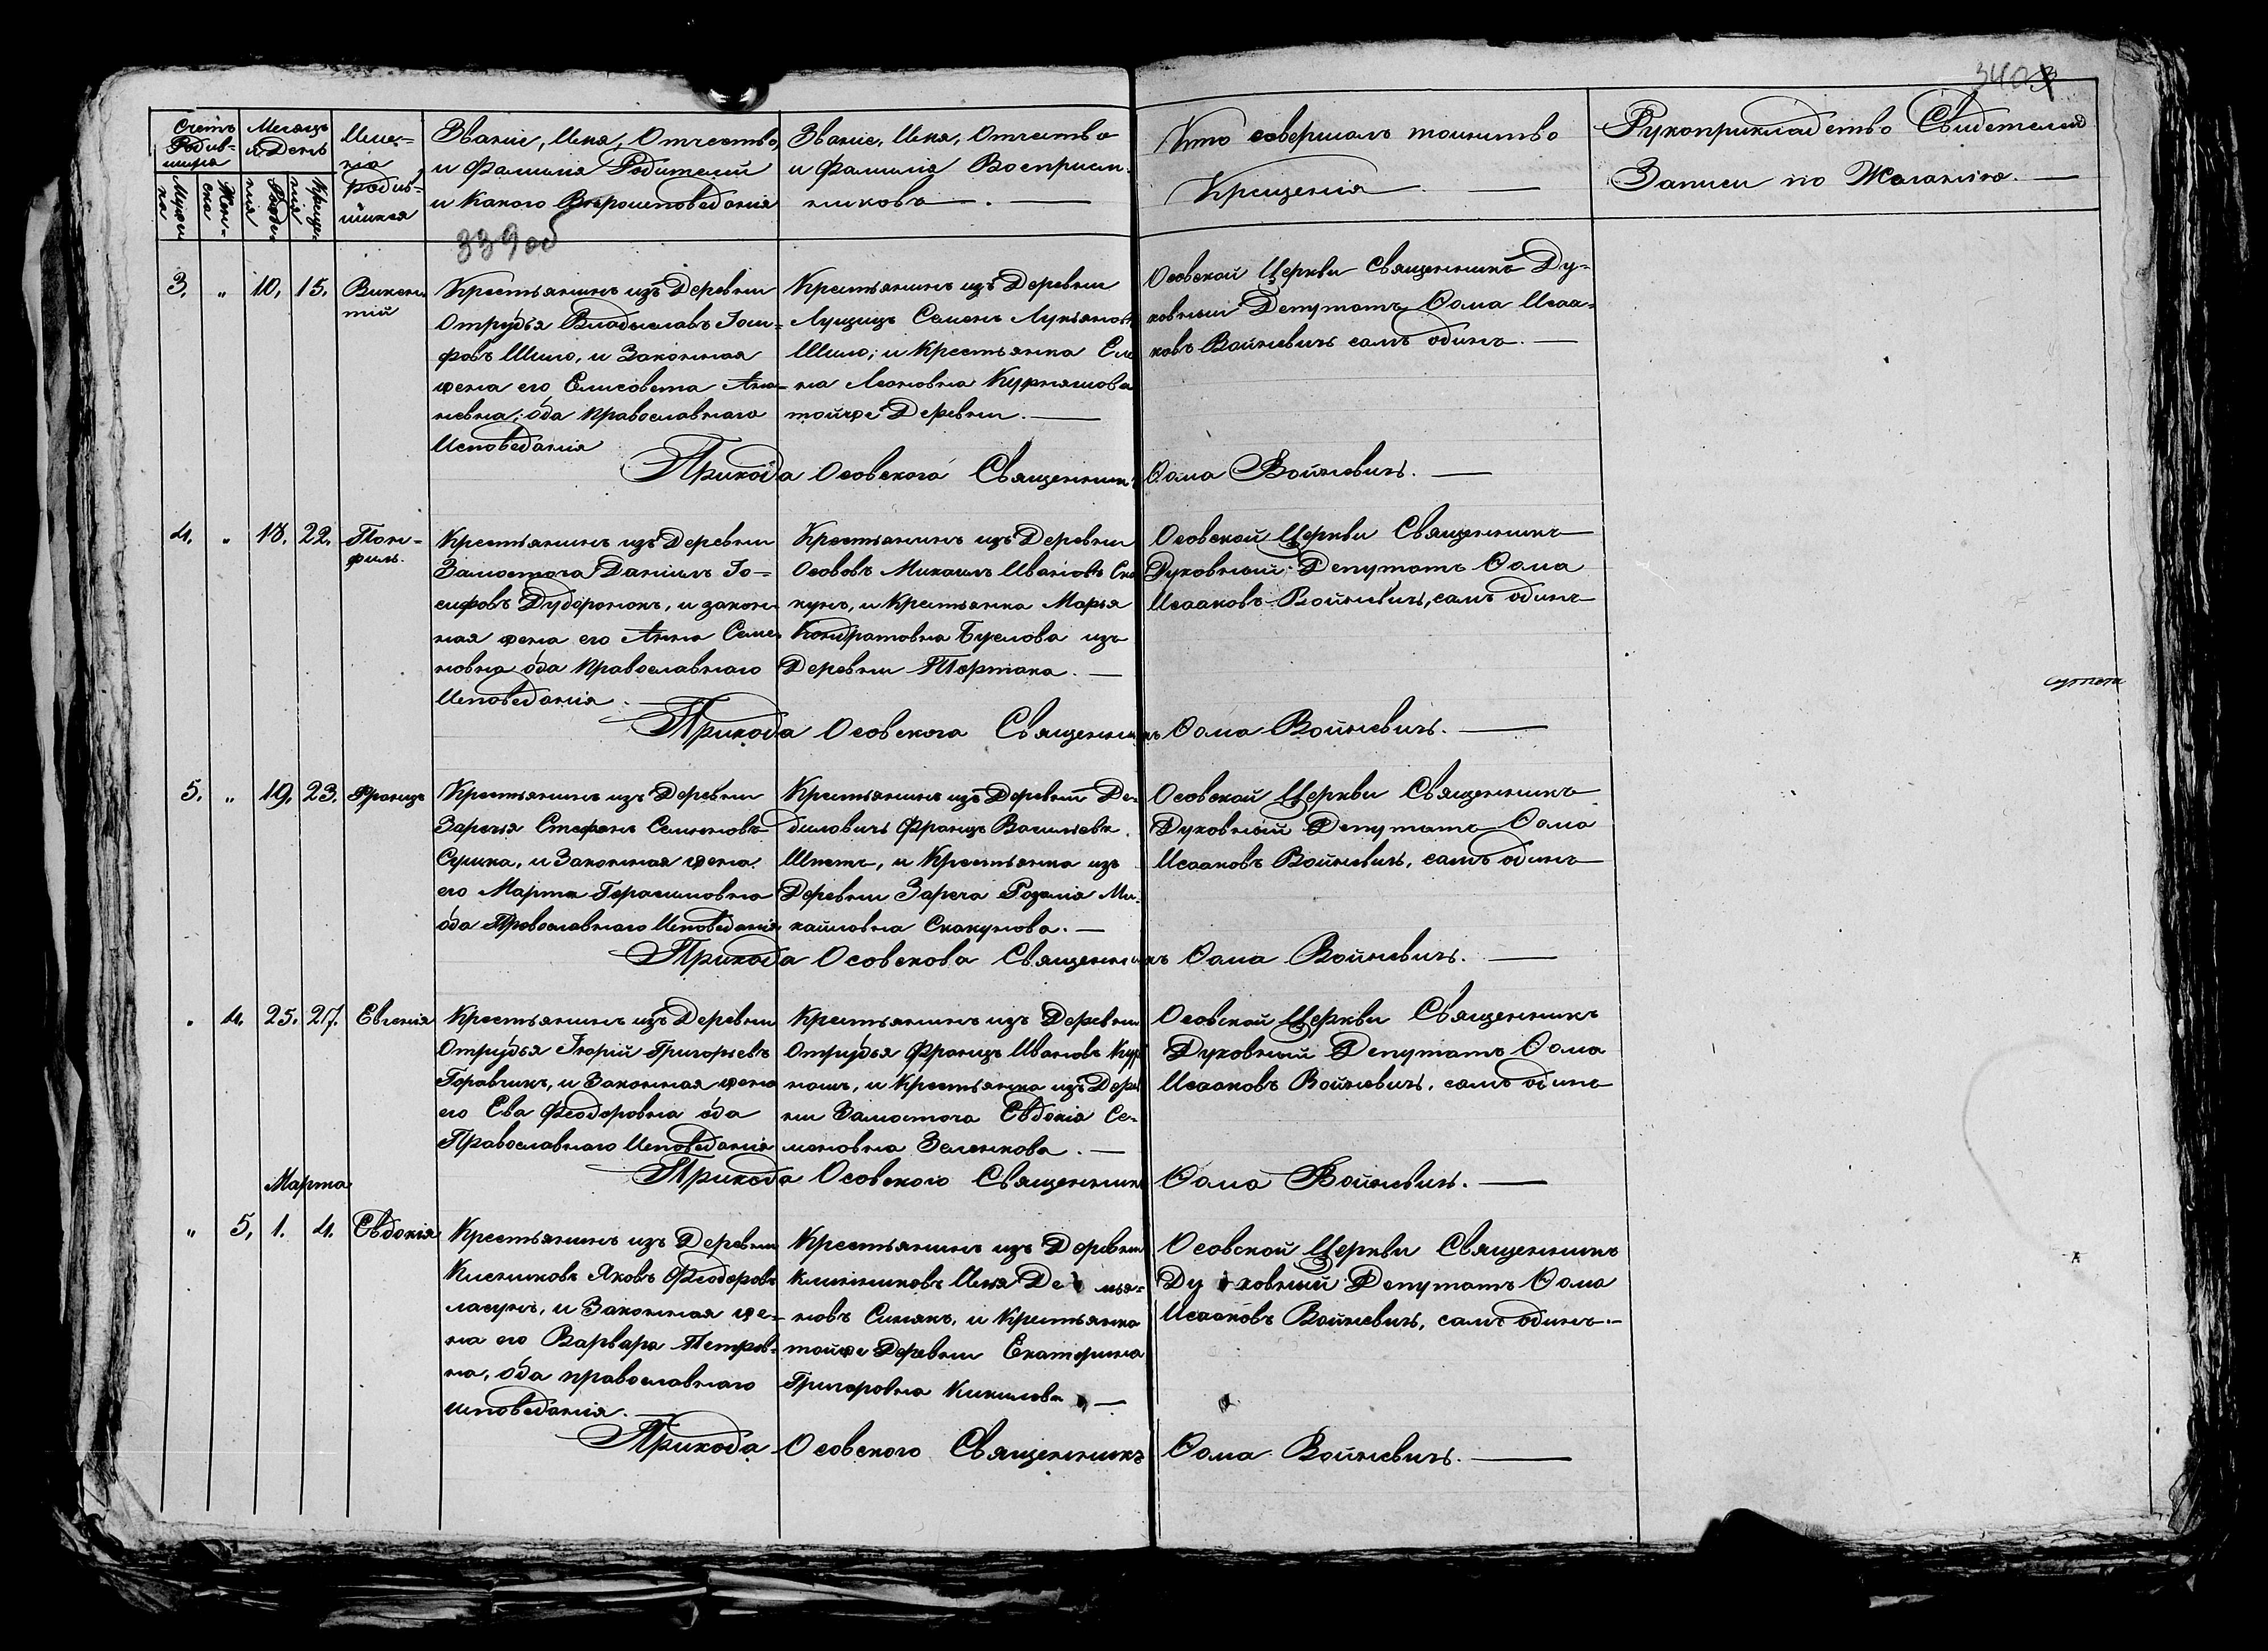 Счетъ Родив-
шихся
Мужес
ка
Жен-
ска
Месяцъ
и День
Рожде-
нія
Креще-
нія
Име-
на
родив-
шихся
Званіе, Имя, Отчество,
и Фамилія Родителей
и Какого Вероисповеданія
Званіе, Имя, Отчество
и Фамилія Восприем-
никовъ.
Кто совершалъ таинство
Крещенія.
Рукоприкладство Свидетелей
Записи по Желанію.
339 об
3. " 10. 15. Викен-
тій
Крестьянинъ изъ Деревни
Отрубья Владыславъ Іоси-
фовъ Шило, и Законная
жена его Елисовета Ана-
ніевна; оба Православнаго
Исповеданія
Крестьянинъ изъ Деревни
Лущицъ Семенъ Лукьяновъ
Шило; и Крестьянка Еле
на Леоновна Курняшова
тойже Деревни.
Осовской Церкви Священникъ Ду-
ховный Депутатъ Ѳома Исаа-
ковъ Войневичъ самъ одинъ.
Прихода Осовского Священникъ Ѳома Войневичъ.
4. " 18. 22. Пан-
филъ.
Крестьянинъ изъ Деревни
Замосточа Даніилъ Іо-
сифовъ Дударонокъ, и закон-
ная жена его Анна Семе-
новна оба Православнаго
Исповеданія.
Крестьянинъ изъ Деревни
Ососовъ Михаилъ Ивановъ Ска
кунъ, и Крестьянка Марья
Кондратовна Буслова изъ
Деревни Портака.
Осовской Церкви Священникъ
Духовный Депутатъ Ѳома
Исааковъ Войневичъ, самъ одинъ
Прихода Осовского Священникъ Ѳома Войневичъ.
5. " 19. 23. Францъ
Крестьянинъ изъ Деревни
Заречья Стефанъ Семеновъ
Сушка, и Законная жена
его Марта Герасимовна
оба Православнаго Исповеданія
Крестьянинъ изъ Деревни Де-
диловичъ Францъ Васильевъ
Шпетъ, и Крестьянка изъ
Деревни Зареча Розалія Ми-
хайловна Скакунова.
Осовской Церкви Священникъ
Духовный Депутатъ Ѳома
Исааковъ Войневичъ, самъ одинъ
Прихода Осовскова Священникъ Ѳома Войневичъ.
" 4. 25. 27. Евгенія
Крестьянинъ изъ Деревни
Отрубья Григорьевъ
Горавчикъ, и Законная жена
его Ева Феодоровна оба
Православнаго Исповеданія
Крестьянинъ изъ Деревни
Отрубья Францъ Ивановъ Кур
нашъ, и Крестьянка изъ Дерев
ни Замосточа Евдокія Се-
меновна Заленкова.
Осовской Церкви Священникъ
Духовный Депутатъ Ѳома
Исааковъ Войневичъ, самъ одинъ
Прихода Осовского Священникъ Ѳома Войневичъ.
Марта
" 5. 1. 4. Евдокія
Крестьянинъ изъ Деревни
Яковъ Феодоровъ
ласунъ, и Законная же-
на его Варвара Петров-
на, оба православнаго
исповеданія.
Крестьянинъ изъ Деревни
Илья Де мья-
новъ Синякъ, и Крестьянка
тойже Деревни Екатерина
Григоровна Кикилева
Осовской Церкви Священникъ
Ду ховный Депутатъ Ѳома
Исааковъ Войневичъ, самъ одинъ.
Прихода Осовского Священникъ Ѳома Войневичъ.